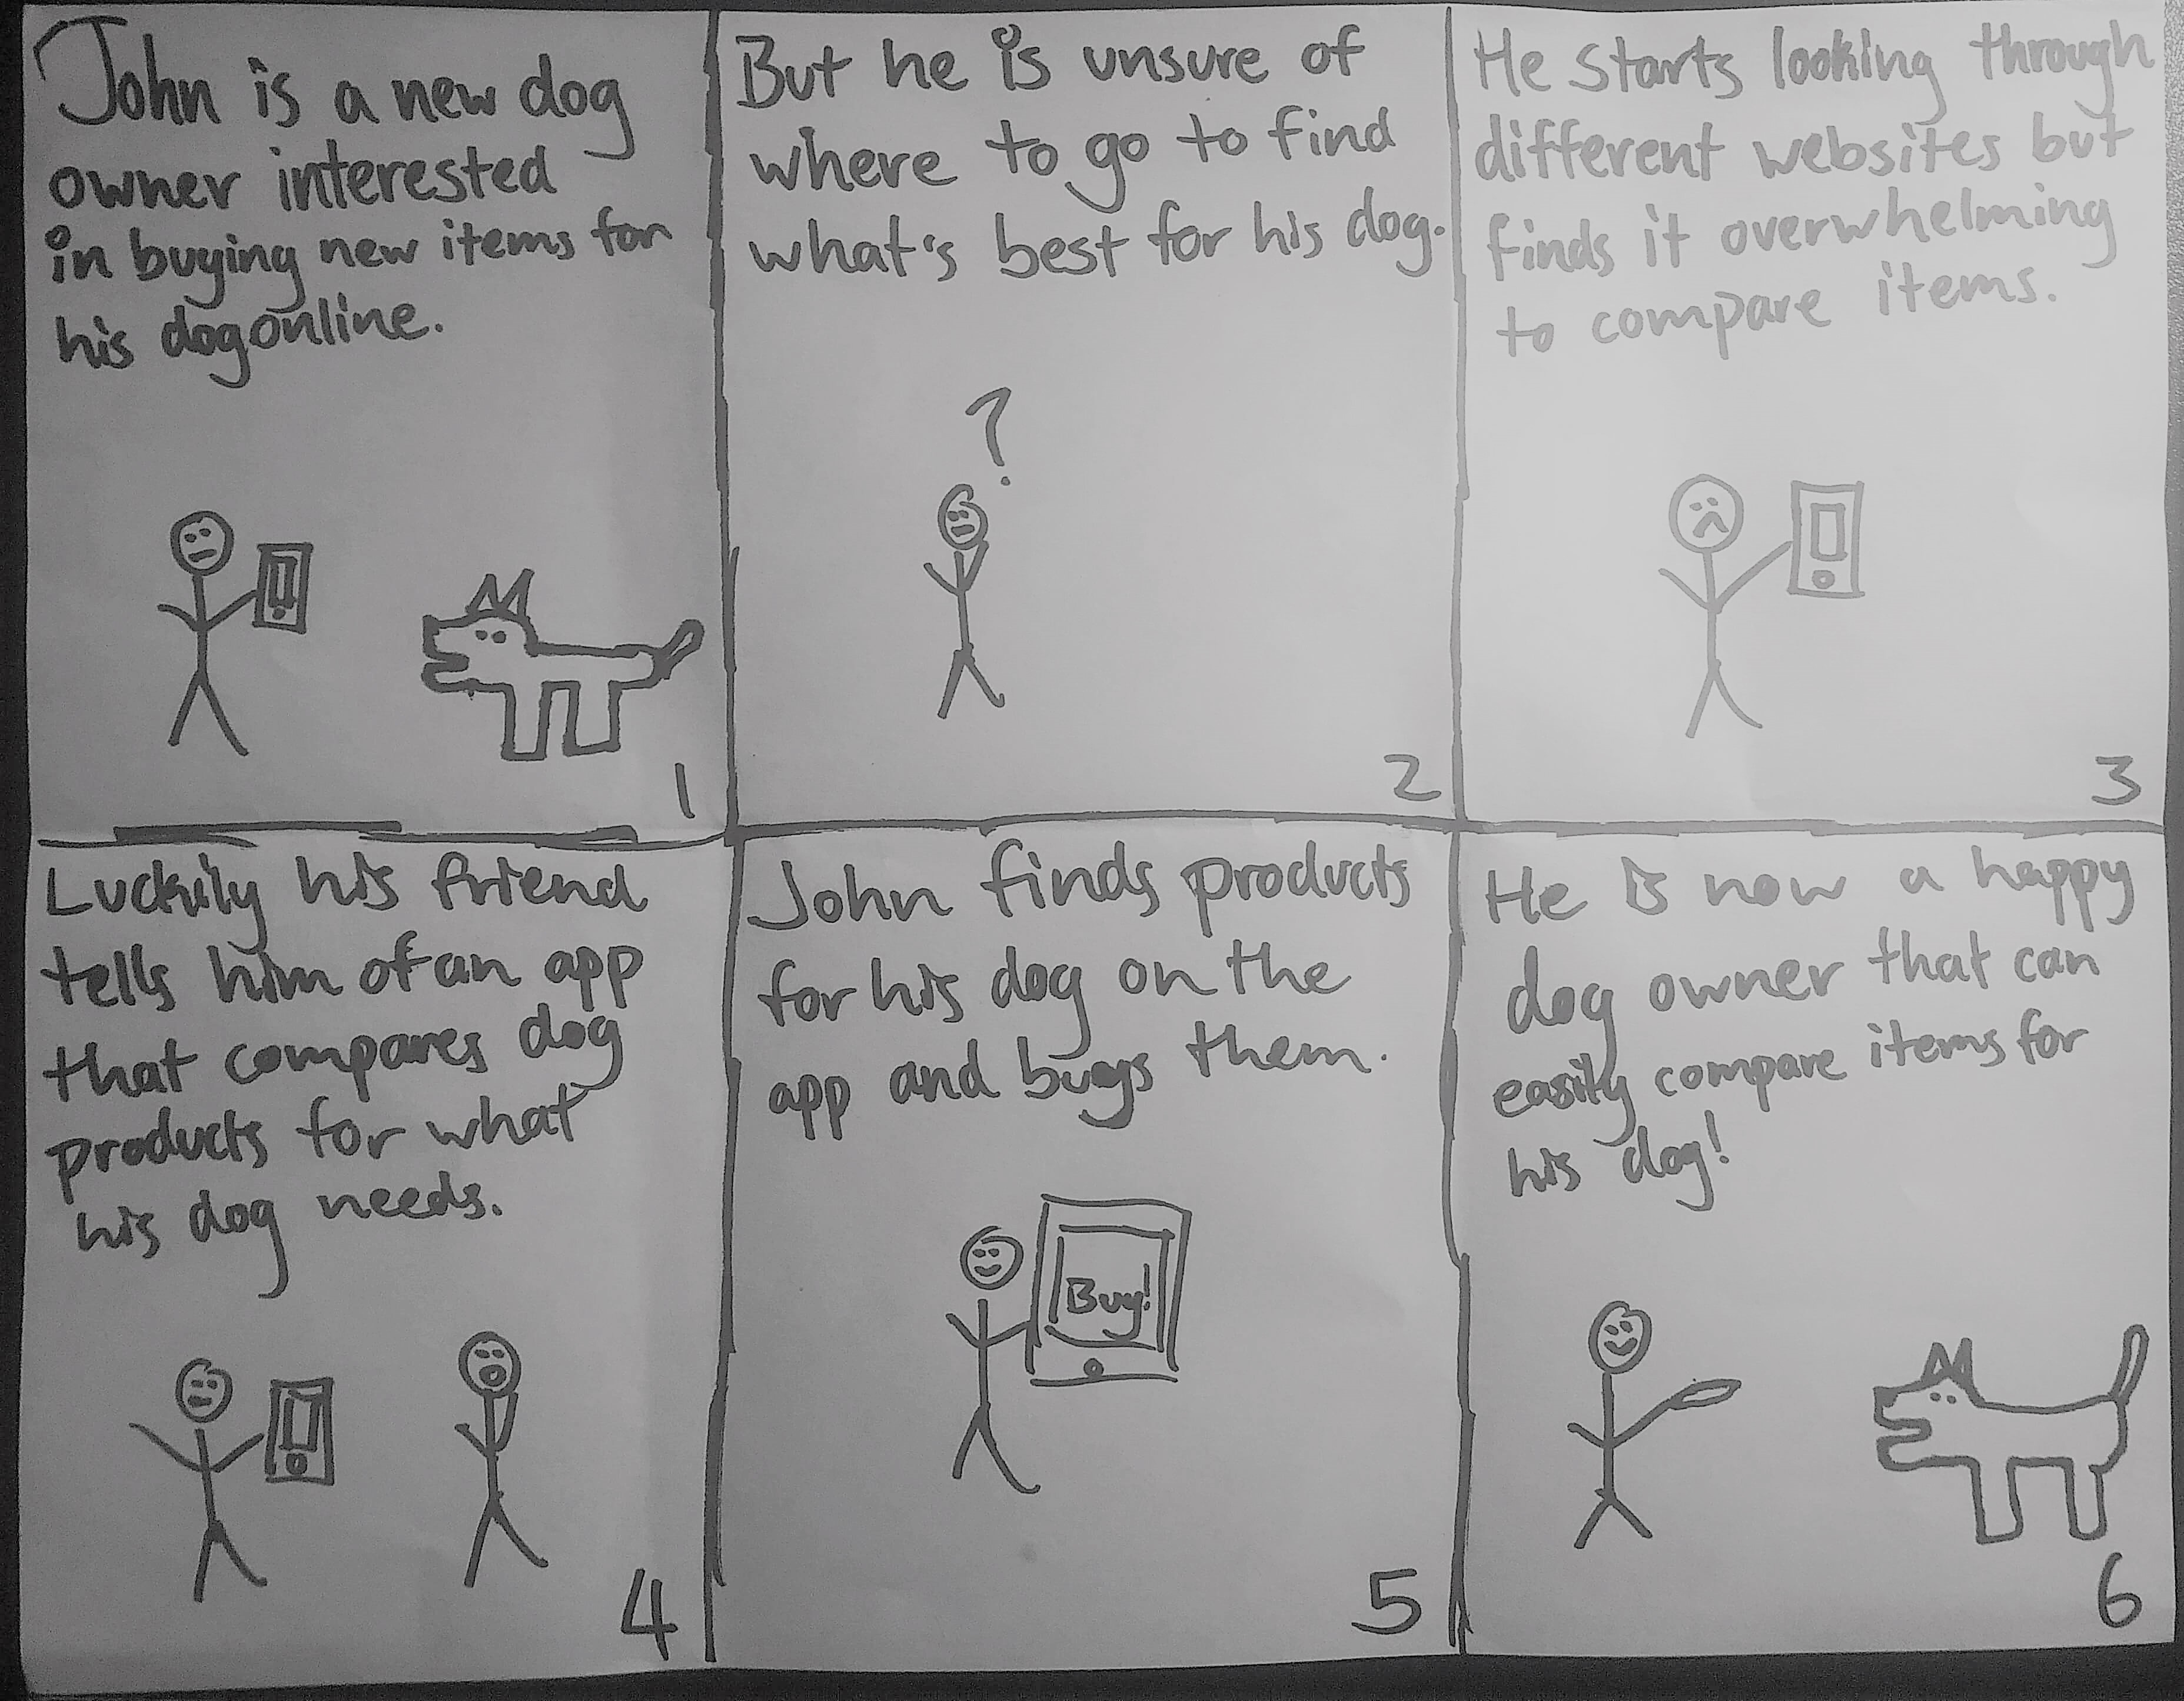 John is a new dog
owner interested
in buying new items for
his dog online.
1
But he is unsure of
where to go to find
what's best for his dog.
?
2
He starts looking through
different websites but
finds it overwhelming
to compare items.
3
Luckily his friend
tells him of an app
that compares dog
products for what
his dog needs.
4
John finds products
for his dog on the
app and buys them.
Buy!
5
He is now a happy
dog owner that can
easily compare items for
his dog!
6